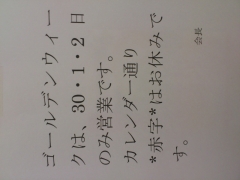 ゴールデンウィー
クは、30・1・2 日
のみ営業です。
カレンダー通り
*赤字*はお休みで
す。
会長